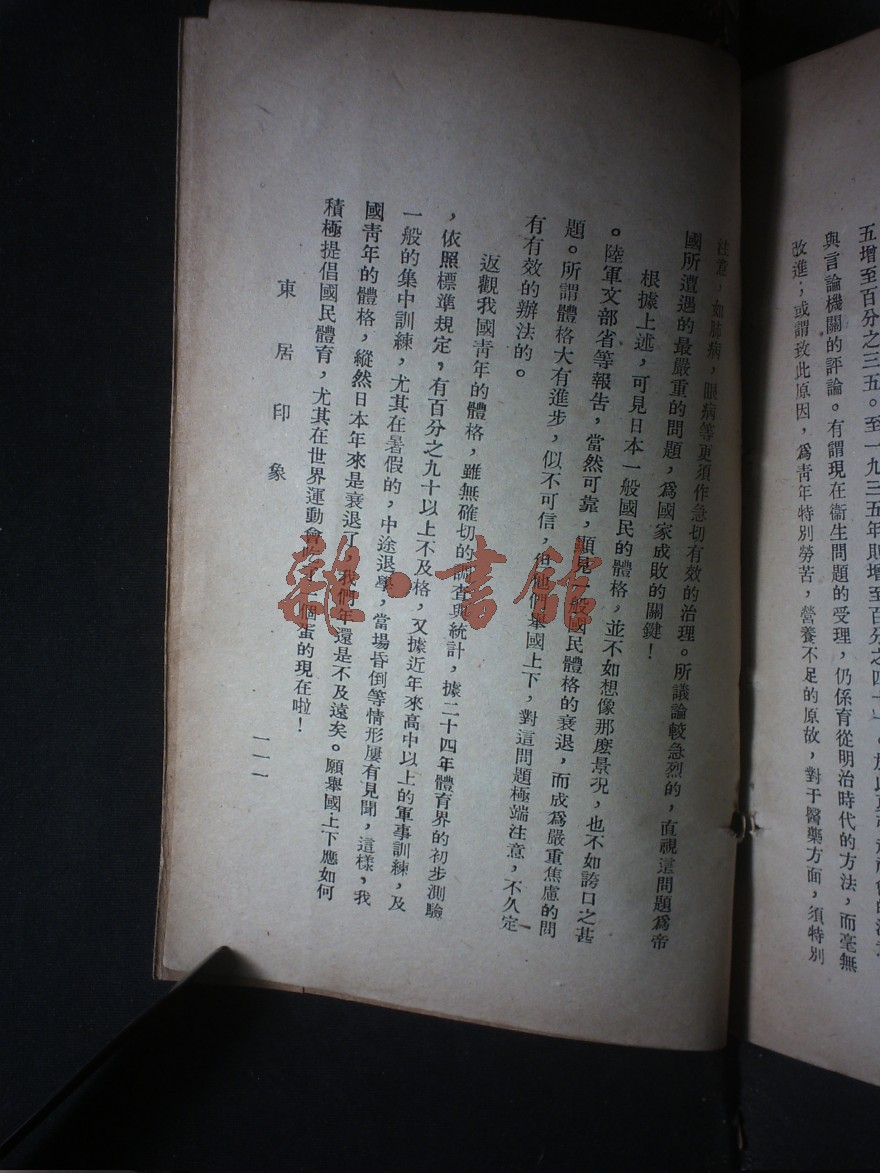 五增至百分之三五。至一九三五年則增至百分之四十
與言論機關的評論。有謂現在衞生問題的受理，仍係育從明治時代的方法，而毫無
改進；或謂致此原因，爲靑年特別勞苦，營養不足的原故，對于醫藥方面，須特別
注意，如肺病，眼病等更須作急切有效的治理。所議論較急烈的，直視這問題爲帝
國所遭遇的最嚴重的問題，爲國家成敗的關鍵！
根據上述，可見日本一般國民的體格，並不如想像那麽景況，也不如誇口之甚
。陸軍文部省等報告，當然可靠，顯見一般國民體格的衰退，而成爲嚴重焦慮的問
題。所謂體格大有進步，似不可信，但他們舉國上下，對這問題極端注意，不久定
有有效的辦法的。
返觀我國靑年的體格，雖無確切的調查與統計，據二十四年體育界的初步測驗
，依照標準規定，有百分之九十以上不及格，又據近年來高中以上的軍事訓練，及
一般的集中訓練，尤其在暑假的，中途退學，當場昏倒等情形屢有見聞，這樣，我
國靑年的體格，縱然日本年來是衰退了，我們年還是不及遠矣。願舉國上下應如何
積極提倡國民體育，尤其在世界運動會吃了一個蛋的現在啦！
東居印象
一一一
雜·書館